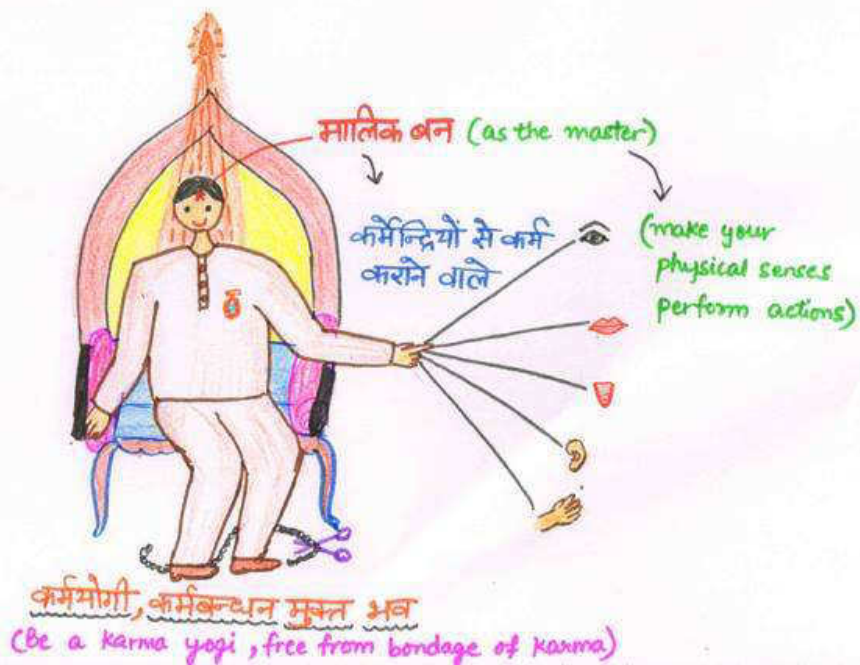 मालिक बन (as the master)
कर्मेन्द्रियों से कर्म
कराने वाले
(make your
physical senses
perform actions)
कर्मयोगी, कर्मबन्धन मुक्त भव
(Be a karma yogi, free from bondage of karma)